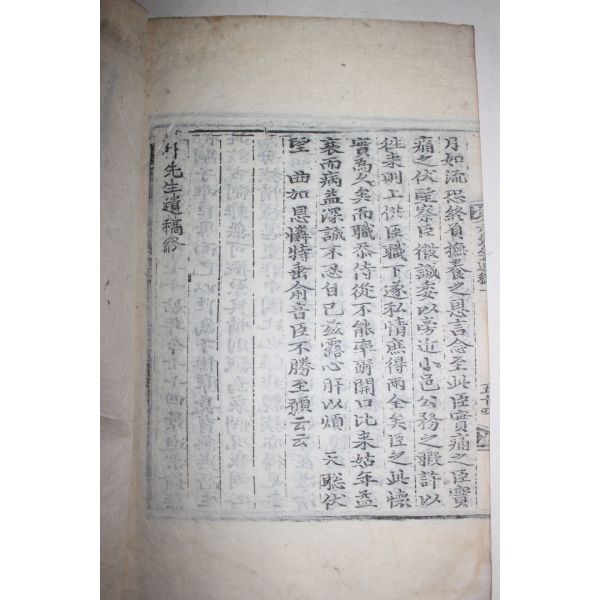 月如流恐終負撫養之恩言念至此臣實痛之臣實
痛之伏望察臣微誠委以旁近小邑公務之暇許以
往来則上供臣職下遂私情庶得兩全矣臣之此懷
實為久矣而職忝侍從不能率爾開口比来姑年益
衰而病益深誠不忍自已玆露心肝以煩 天聡伏
望 曲加恩憐特垂兪音臣不勝至願云云
先生遺稿終
五十四